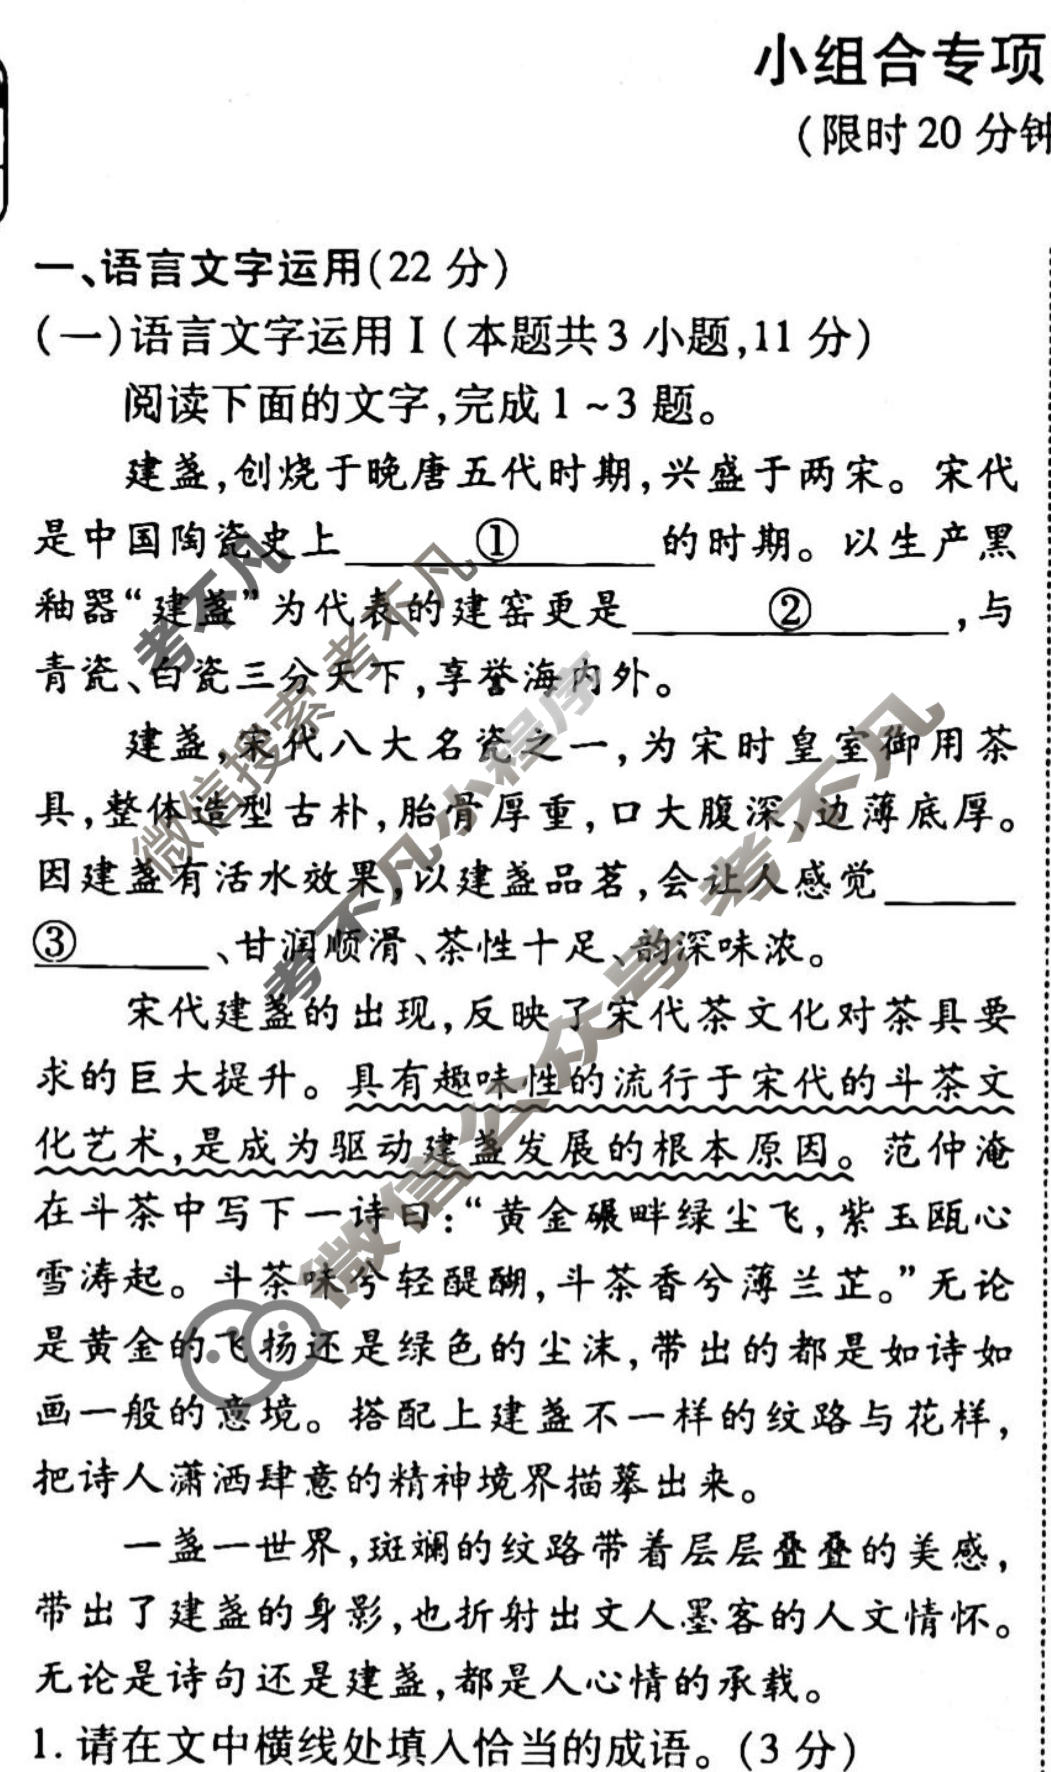 小组合专项
(限时20分钟
一、语言文字运用(22分)
(一)语言文字运用Ⅰ(本题共3小题,11分)
阅读下面的文字,完成1~3题。
建盏,创烧于晚唐五代时期,兴盛于两宋。宋代
是中国陶瓷史上 ① 的时期。以生产黑
釉器“建盏”为代表的建窑更是 ② ,与
青瓷、白瓷三分天下,享誉海内外。
建盏,宋代八大名瓷之一,为宋时皇室御用茶
具,整体造型古朴,胎骨厚重,口大腹深、边薄底厚。
因建盏有活水效果,以建盏品茗,会让人感觉
③ 、甘润顺滑、茶性十足、韵深味浓。
宋代建盏的出现,反映了宋代茶文化对茶具要
求的巨大提升。具有趣味性的流行于宋代的斗茶文
化艺术,是成为驱动建盏发展的根本原因。范仲淹
在斗茶中写下一诗曰:“黄金碾畔绿尘飞,紫玉瓯心
雪涛起。斗茶味兮轻醍醐,斗茶香兮薄兰芷。”无论
是黄金的飞扬还是绿色的尘沫,带出的都是如诗如
画一般的意境。搭配上建盏不一样的纹路与花样,
把诗人潇洒肆意的精神境界描摹出来。
一盏一世界,斑斓的纹路带着层层叠叠的美感,
带出了建盏的身影,也折射出文人墨客的人文情怀。
无论是诗句还是建盏,都是人心情的承载。
1. 请在文中横线处填入恰当的成语。(3分)
考不凡
微信搜索 考不凡
考不凡小程序
微信公众号 考不凡